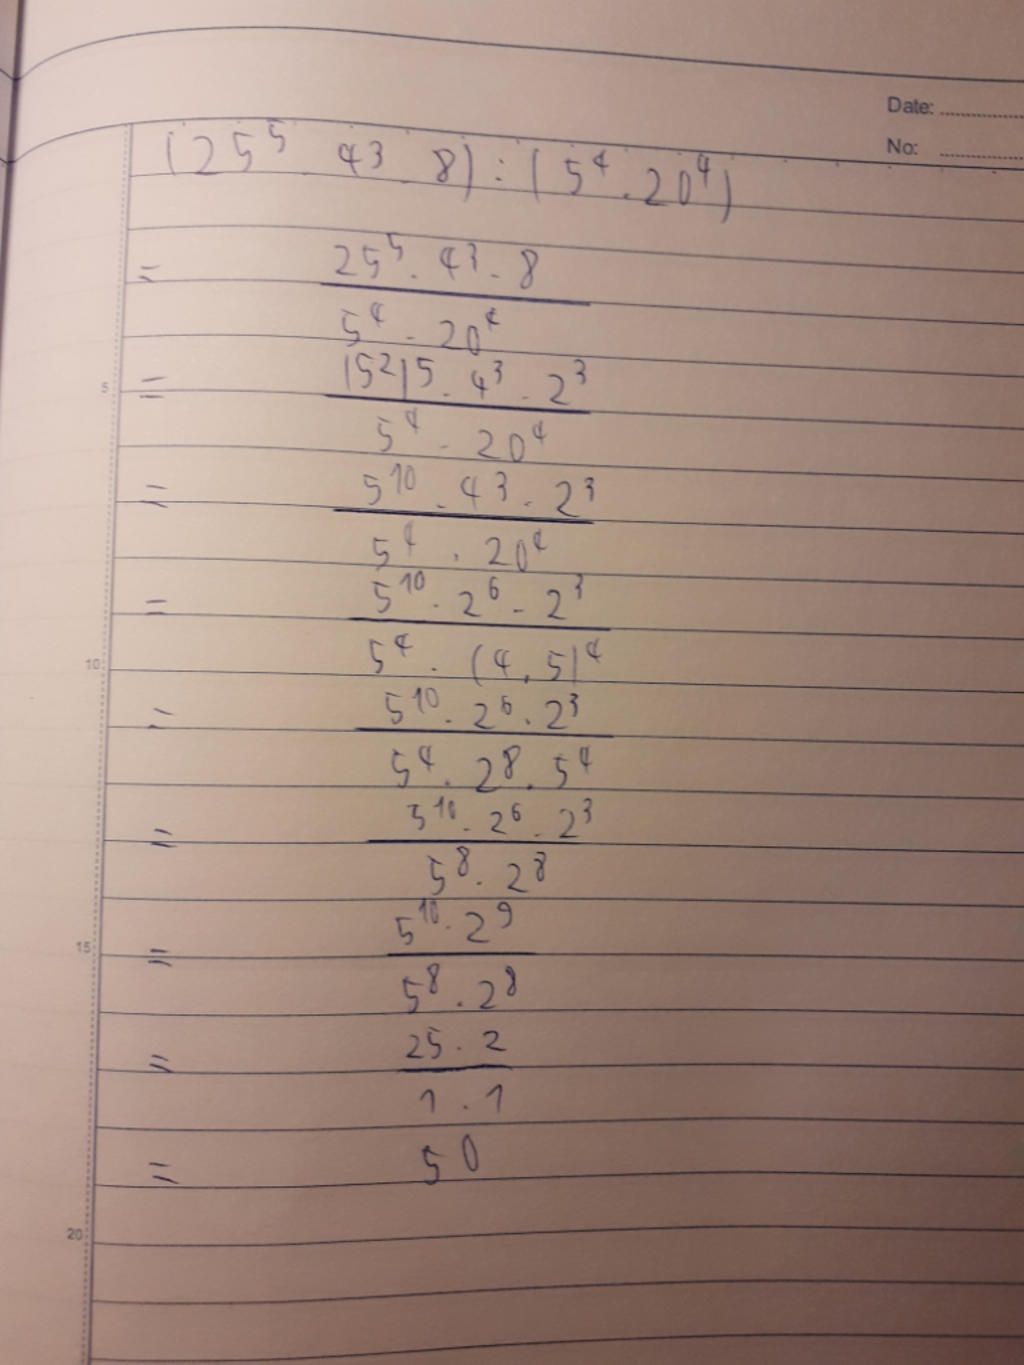 Date: ..............
No: ..............
(25⁵ 4³ . 8) : (5⁴ . 20⁴)
= 25⁵ . 4³ . 8
5⁴ . 20⁴
5 = (5²)5 . 4³ . 2³
5⁴ . 20⁴
= 5¹⁰ . 4³ . 2³
5⁴ . 20⁴
= 5¹⁰ . 2⁶ . 2³
10 5⁴ . (4 . 5)⁴
= 5¹⁰ . 2⁶ . 2³
5⁴ . 2⁸ . 5⁴
= 5¹⁰ . 2⁶ . 2³
5⁸ . 2⁸
15 = 5¹⁰ . 2⁹
5⁸ . 2⁸
= 25 . 2
1 . 1
= 50
20